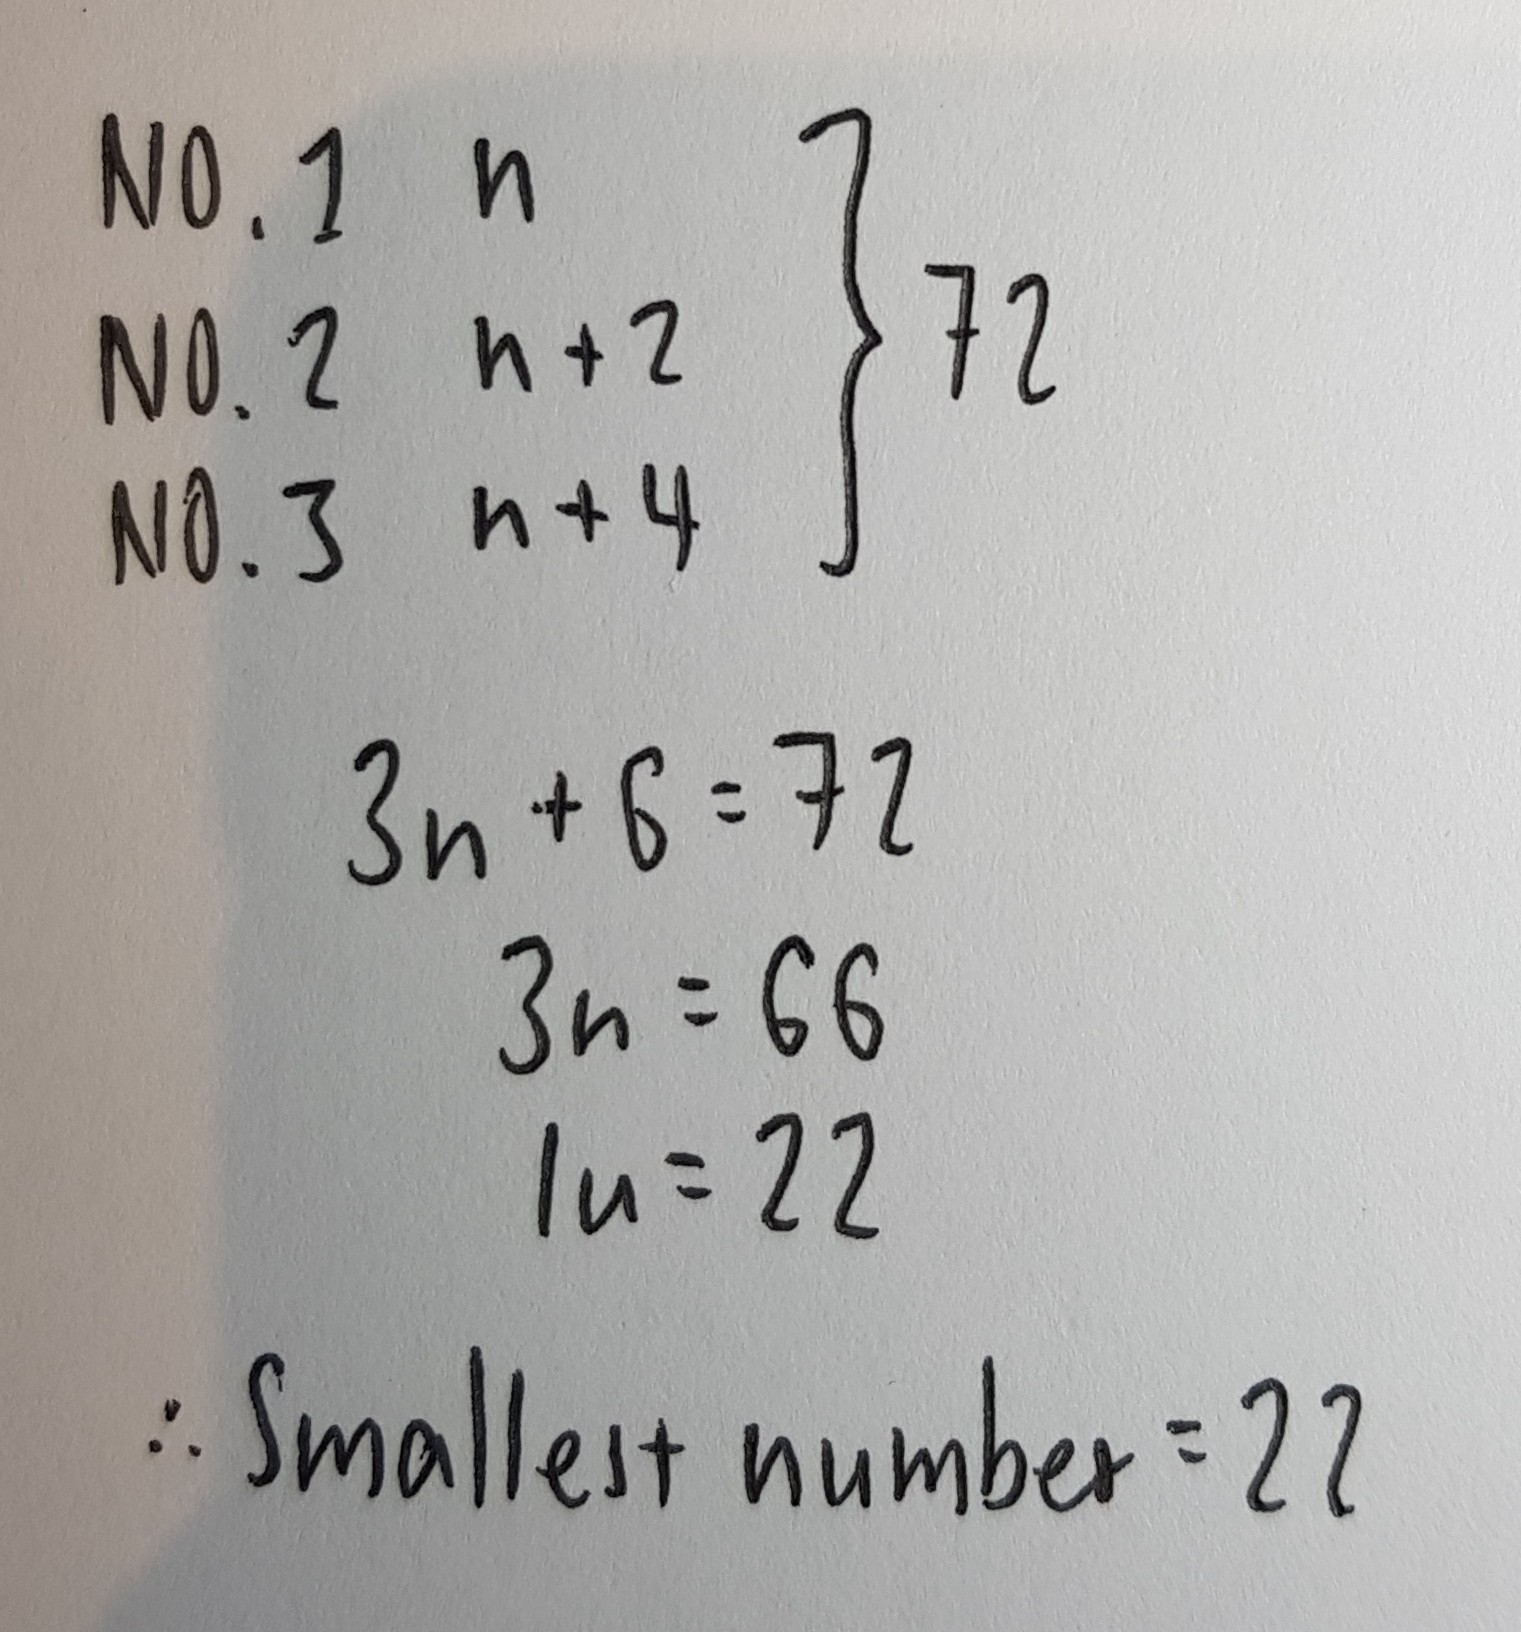 NO. 1 n
NO. 2 n + 2 } 72
NO. 3 n + 4
3n + 6 = 72
3n = 66
1u = 22
∴ Smallest number = 22